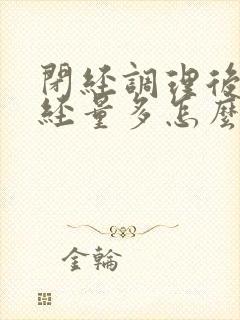 閉經調理後
經量多怎麼
金輪